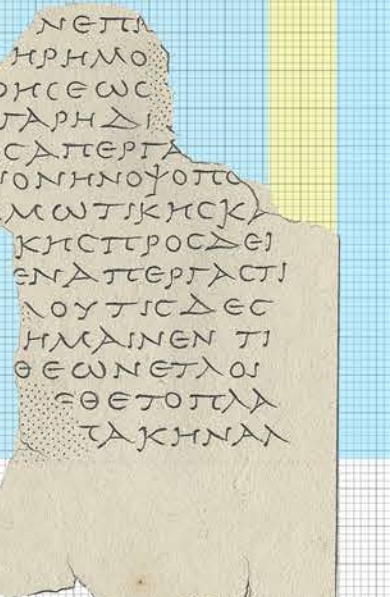 ΝΕΠΙ
ΗΡΗΜΟ
ΟΗϹΕΩϹ
ΓΑΡΗΔΙ
ϹΑΠΕΡΓΑ
ΙΟΝΗΝΟΥΟΠΟ
ΜΩΤΙΚΗϹΚΑ
ΚΗϹΠΡΟϹΔΕΙ
ΕΝΑΠΕΡΓΑϹΤΙ
ΛΟΥΤΙϹΔΕϹ
ΗΜΑΙΝΕΝ ΤΙ
ΘΕΩΝΕΤΛΟΙ
ΕΘΕΤΟΠΛΑ
ΤΑΚΗΝΑΛ